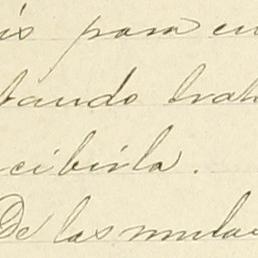 is para en
tando trah
cibirla.
De las mulas